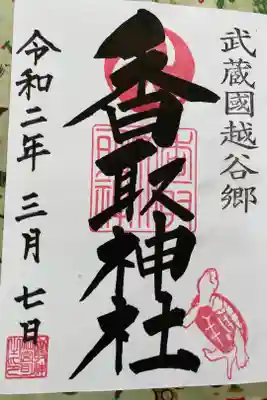 武蔵國越谷郷
香取神社
令和二年 三月 七日